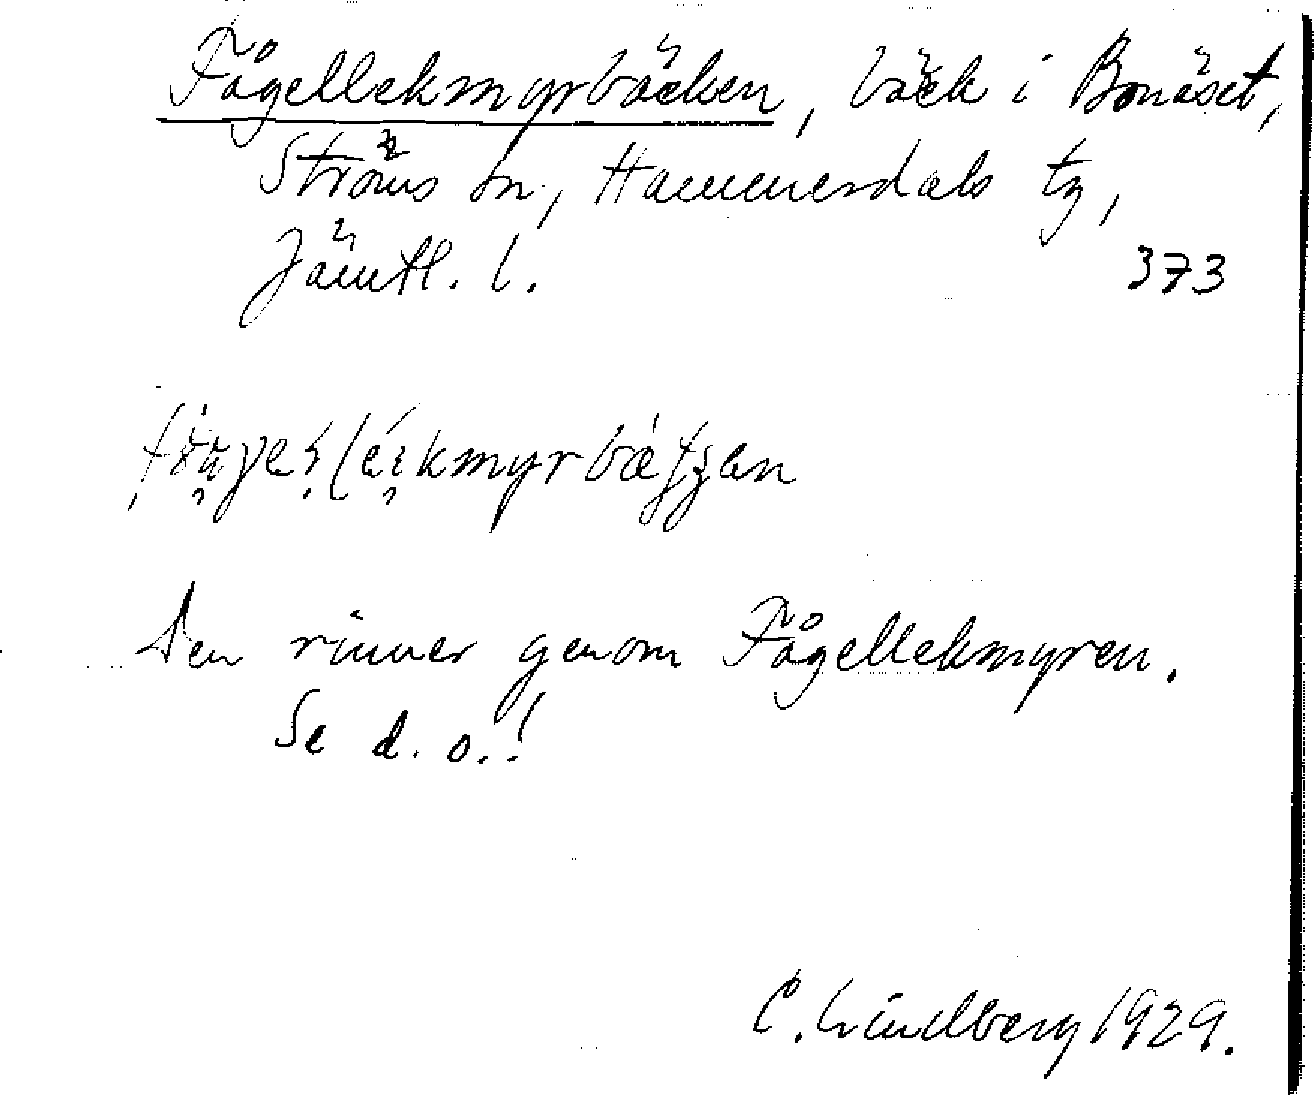 Fågellekmyrbäcken, bäck i Bonäset,
Ströms sn., Hammerdals tg,
Jämtl. l. 373
Den rinner genom Fågellekmyren.
Se d. o.!
C. Lindberg 1929.